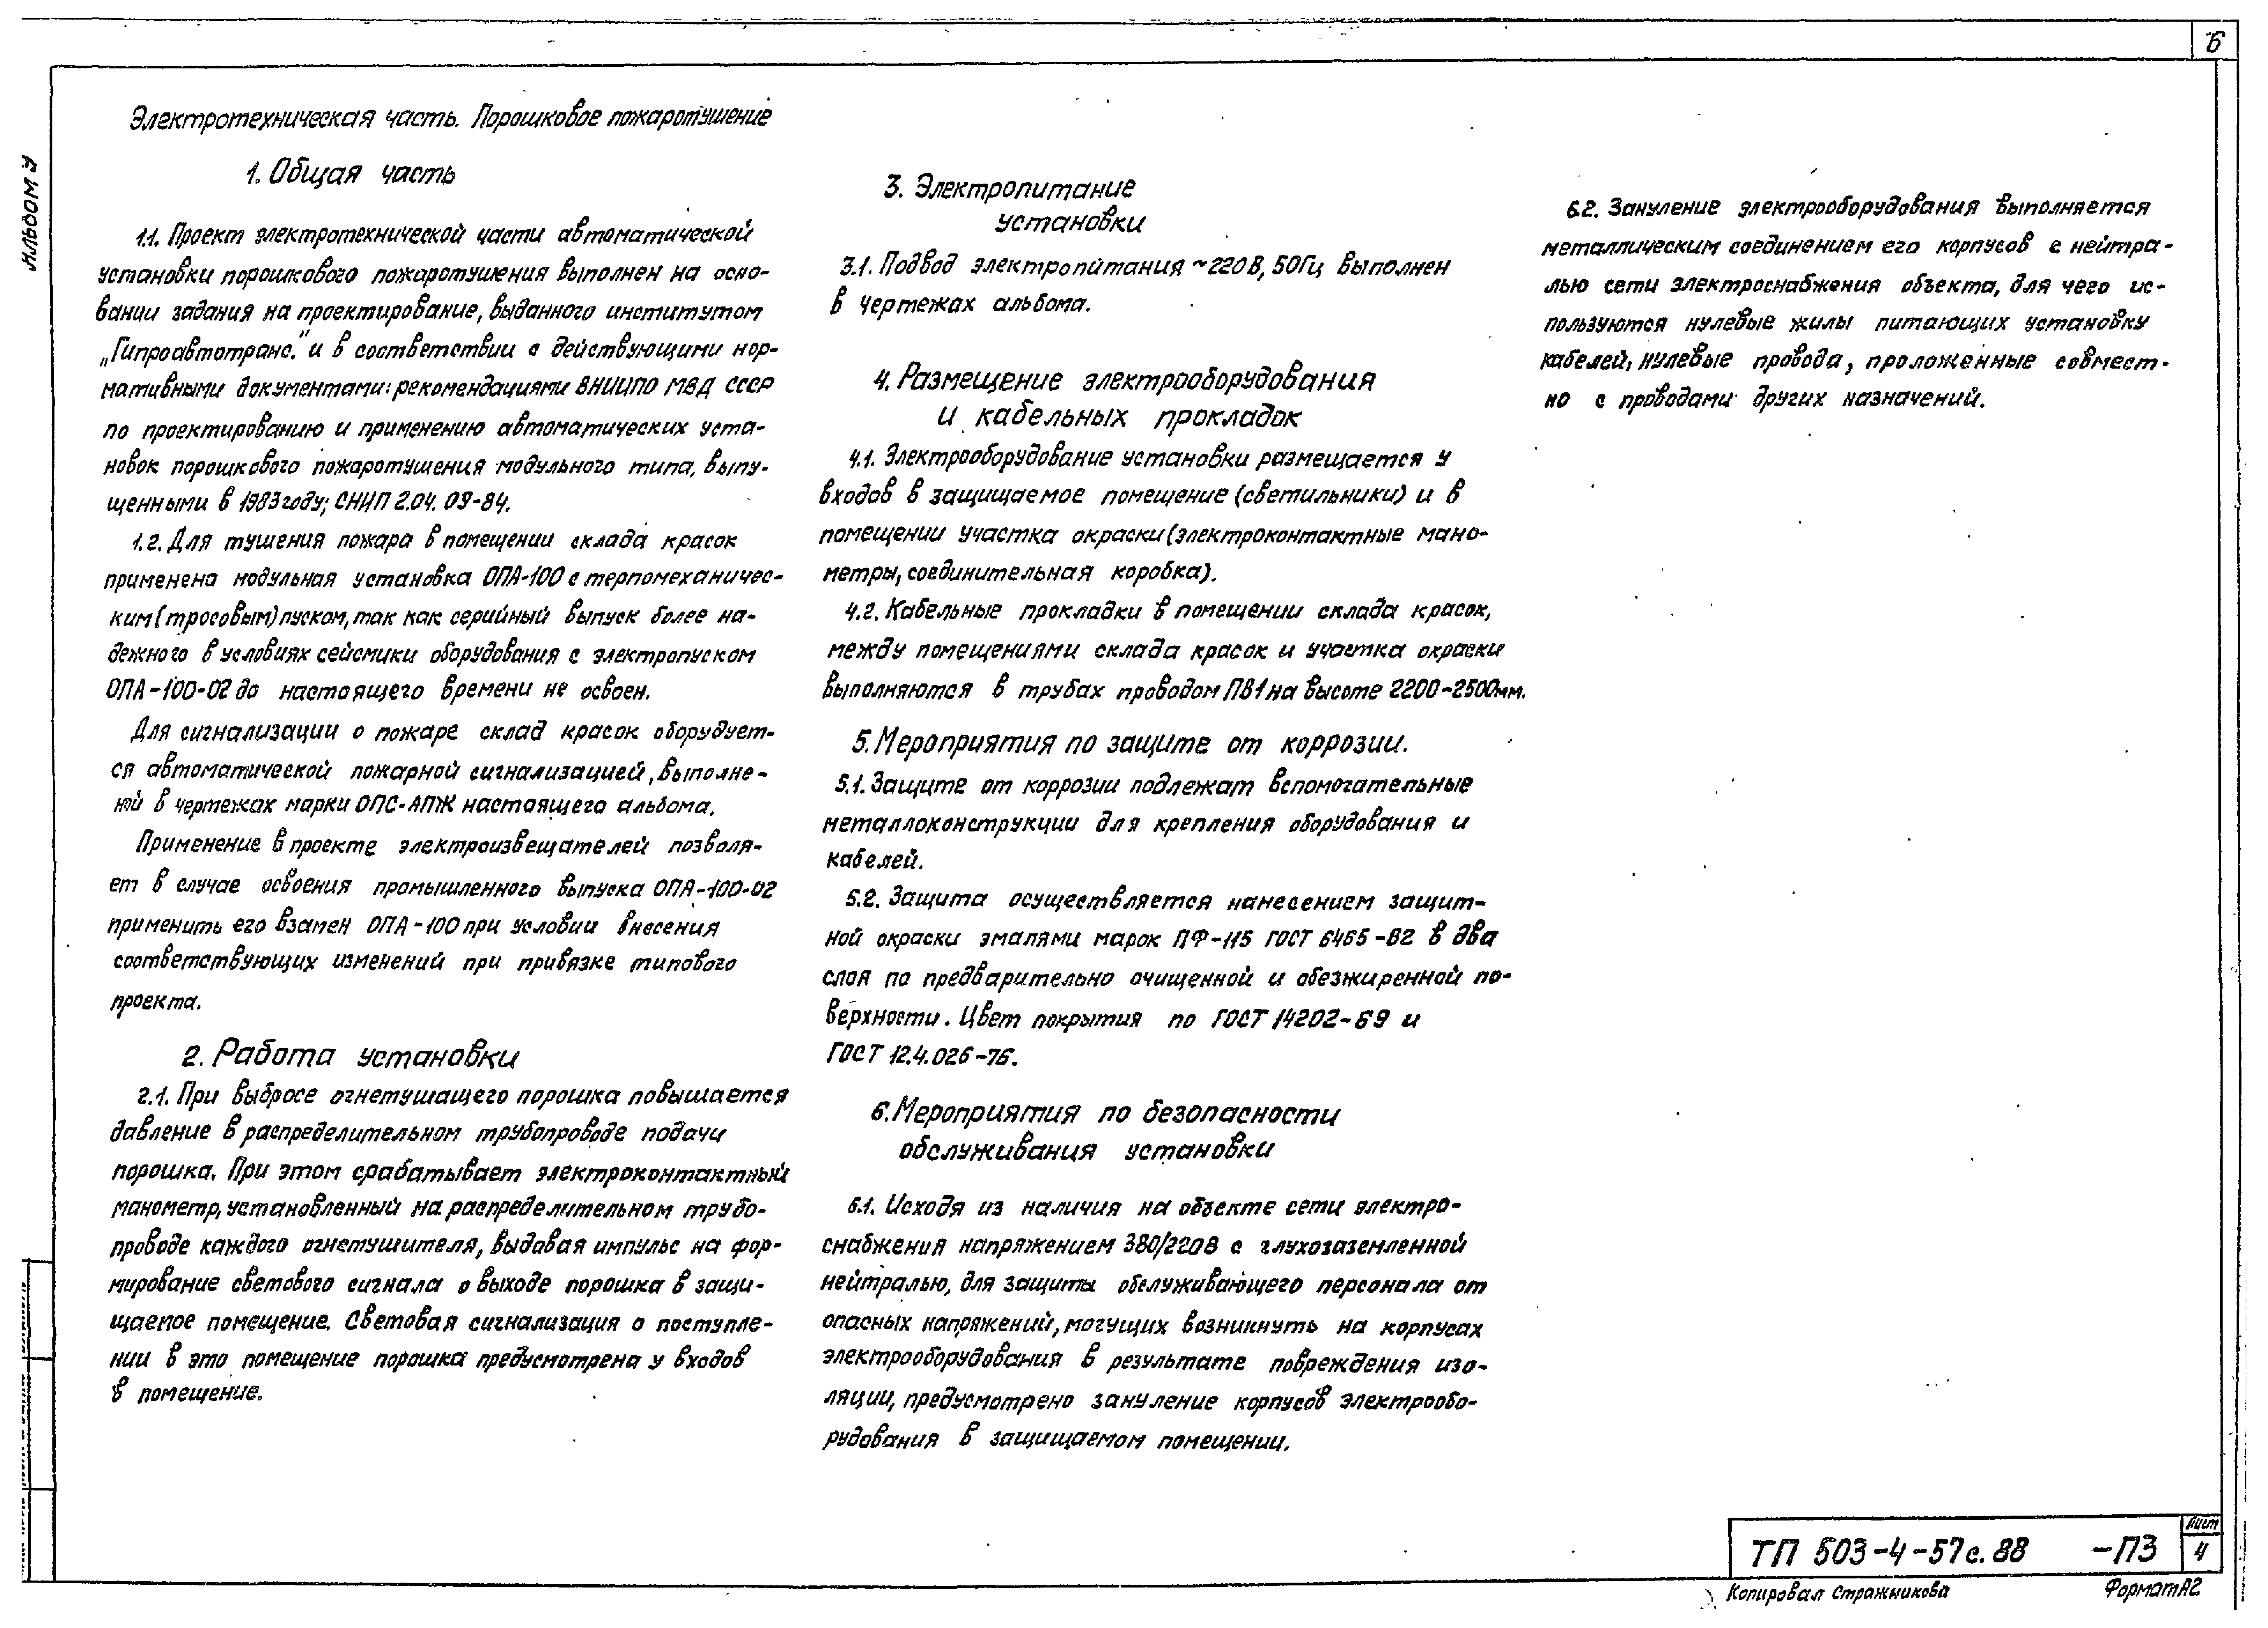 6
Альбом У
Электротехническая часть. Порошковое пожаротушение
1. Общая часть
1.1. Проект электротехнической части автоматической
установки порошкового пожаротушения выполнен на осно-
вании задания на проектирование, выданного институтом
„Гипроавтотранс." и в соответствии с действующими нор-
мативными документами: рекомендациями ВНИИПО МВД СССР
по проектированию и применению автоматических уста-
новок порошкового пожаротушения модульного типа, выпу-
щенными в 1983 году; СНИП 2.04.09-84.
1.2. Для тушения пожара в помещении склада красок
применена модульная установка ОПА-100 с терпомеханичес-
ким (тросовым) пуском, так как серийный выпуск более на-
дежного в условиях сейсмики оборудования с электропуском
ОПА-100-02 до настоящего времени не освоен.
Для сигнализации о пожаре склад красок оборудует-
ся автоматической пожарной сигнализацией, выполне-
ной в чертежах марки ОПС-АПЖ настоящего альбома.
Применение в проекте электроизвещателей позволя-
ет в случае освоения промышленного выпуска ОПА-100-02
применить его взамен ОПА-100 при условии внесения
соответствующих изменений при привязке типового
проекта.
2. Работа установки
2.1. При выбросе огнетушащего порошка повышается
давление в распределительном трубопроводе подачи
порошка. При этом срабатывает электроконтактный
манометр, установленный на распределительном трубо-
проводе каждого огнетушителя, выдавая импульс на фор-
мирование светового сигнала о выходе порошка в защи-
щаемое помещение. Световая сигнализация о поступле-
нии в это помещение порошка предусмотрена у входов
в помещение.
3. Электропитание
установки
3.1. Подвод электропитания ~220В, 50Гц выполнен
в чертежах альбома.
4. Размещение электрооборудования
и кабельных прокладок
4.1. Электрооборудование установки размещается у
входов в защищаемое помещение (светильники) и в
помещении участка окраски (электроконтактные мано-
метры, соединительная коробка).
4.2. Кабельные прокладки в помещении склада красок,
между помещениями склада красок и участка окраски
выполняются в трубах проводом ПВ1 на высоте 2200-2500мм.
5. Мероприятия по защите от коррозии.
5.1. Защите от коррозии подлежат вспомогательные
металлоконструкции для крепления оборудования и
кабелей.
5.2. Защита осуществляется нанесением защит-
ной окраски эмалями марок ПФ-115 ГОСТ 6465-82 в два
слоя по предварительно очищенной и обезжиренной по-
верхности. Цвет покрытия по ГОСТ 14202-69 и
ГОСТ 12.4.026-76.
6. Мероприятия по безопасности
обслуживания установки
6.1. Исходя из наличия на объекте сети электро-
снабжения напряжением 380/220В с глухозаземленной
нейтралью, для защиты обслуживающего персонала от
опасных напряжений, могущих возникнуть на корпусах
электрооборудования в результате повреждения изо-
ляции, предусмотрено зануление корпусов электрообо-
рудования в защищаемом помещении.
6.2. Зануление электрооборудования выполняется
металлическим соединением его корпусов с нейтра-
лью сети электроснабжения объекта, для чего ис-
пользуются нулевые жилы питающих установку
кабелей, нулевые провода, проложенные совмест-
но с проводами других назначений.
ТП 503-4-57с.88 -ПЗ
Лист
4
Копировал Стражникова
Формат А2